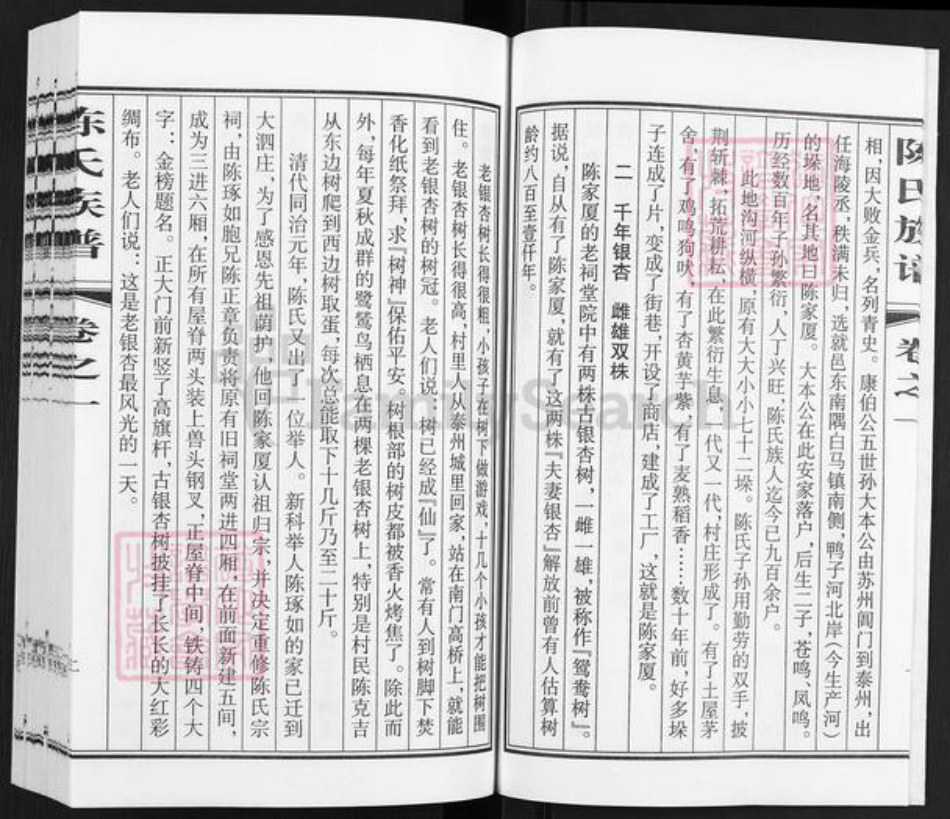 陈氏族谱
卷之一
相，因大败金兵，名列青史。康伯公五世孙大本公由苏州阊门到泰州，出
任海陵丞，秩满未归，选就邑东南隅白马镇南侧，鸭子河北岸（今生产河）
的垛地，名其地曰陈家厦。大本公在此安家落户，后生二子，苍鸣、凤鸣。
历经数百年子孙繁衍，人丁兴旺，陈氏族人迄今已九百余户。
此地沟河纵横，原有大大小小七十二垛。陈氏子孙用勤劳的双手，披
荆斩棘，拓荒耕耘，在此繁衍生息，一代又一代，村庄形成了。有了土屋茅
舍，有了鸡鸣狗吠，有了杏黄芋紫，有了麦熟稻香……数十年前，好多垛
子连成了片，变成了街巷，开设了商店，建成了工厂，这就是陈家厦。
二　千年银杏　雌雄双株
陈家厦的老祠堂院中有两株古银杏树，一雌一雄，被称作『鸳鸯树』。
据说，自从有了陈家厦，就有了这两株『夫妻银杏』解放前曾有人估算树
龄约八百至壹仟年。
老银杏树长得很粗，小孩子在树下做游戏，十几个小孩才能把树围
住。老银杏树长得很高，村里人从泰州城里回家，站在南门高桥上，就能
看到老银杏树的树冠。老人们说：树已经成『仙』了。常有人到树脚下焚
香化纸祭拜，求『树神』保佑平安，树根部的树皮都被香火烤焦了。除此而
外，每年夏秋成群的鹭鸶鸟栖息在两棵老银杏树上，特别是村民陈克吉
从东边树爬到西边树取蛋，每次总能取下十几斤乃至二十斤。
清代同治元年，陈氏又出了一位举人。新科举人陈琢如的家已迁到
大泗庄，为了感恩先祖荫护，他回陈家厦认祖归宗，并决定重修陈氏宗
祠，由陈琢如胞兄陈正章负责将原有旧祠堂两进四厢，在前面新建五间，
成为三进六厢，在所有屋脊两头装上兽头钢叉，正屋脊中间，铁铸四个大
字：金榜题名。正大门前新竖了高旗杆，古银杏树披挂了长长的大红彩
绸布。老人们说：这是老银杏最风光的一天。
陈氏族谱
卷之一
FamilySearch